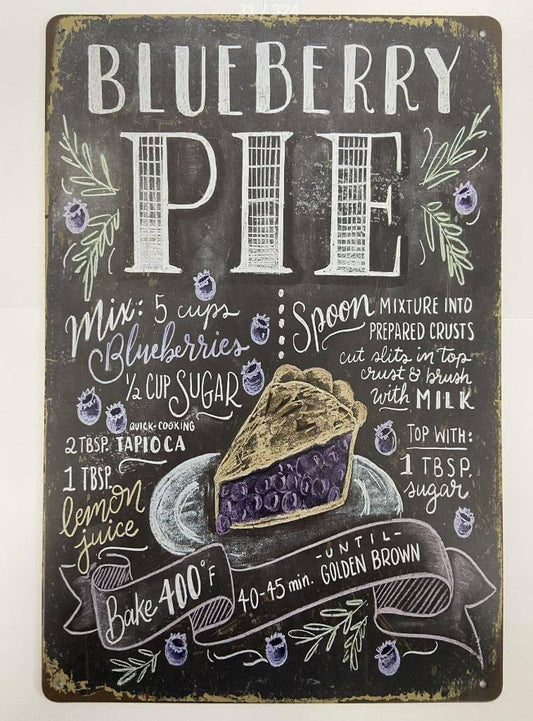 31 / 324
BLUEBERRY
PIE
Mix: 5 cups
Blueberries
1/2 CUP SUGAR
QUICK-COOKING
2 TBSP. TAPIOCA
1 TBSP.
lemon
juice
Spoon MIXTURE INTO
PREPARED CRUSTS
cut slits in top
crust & brush
with MILK
TOP WITH:
1 TBSP.
sugar
Bake 400°F
40-45 min. -UNTIL-
GOLDEN BROWN